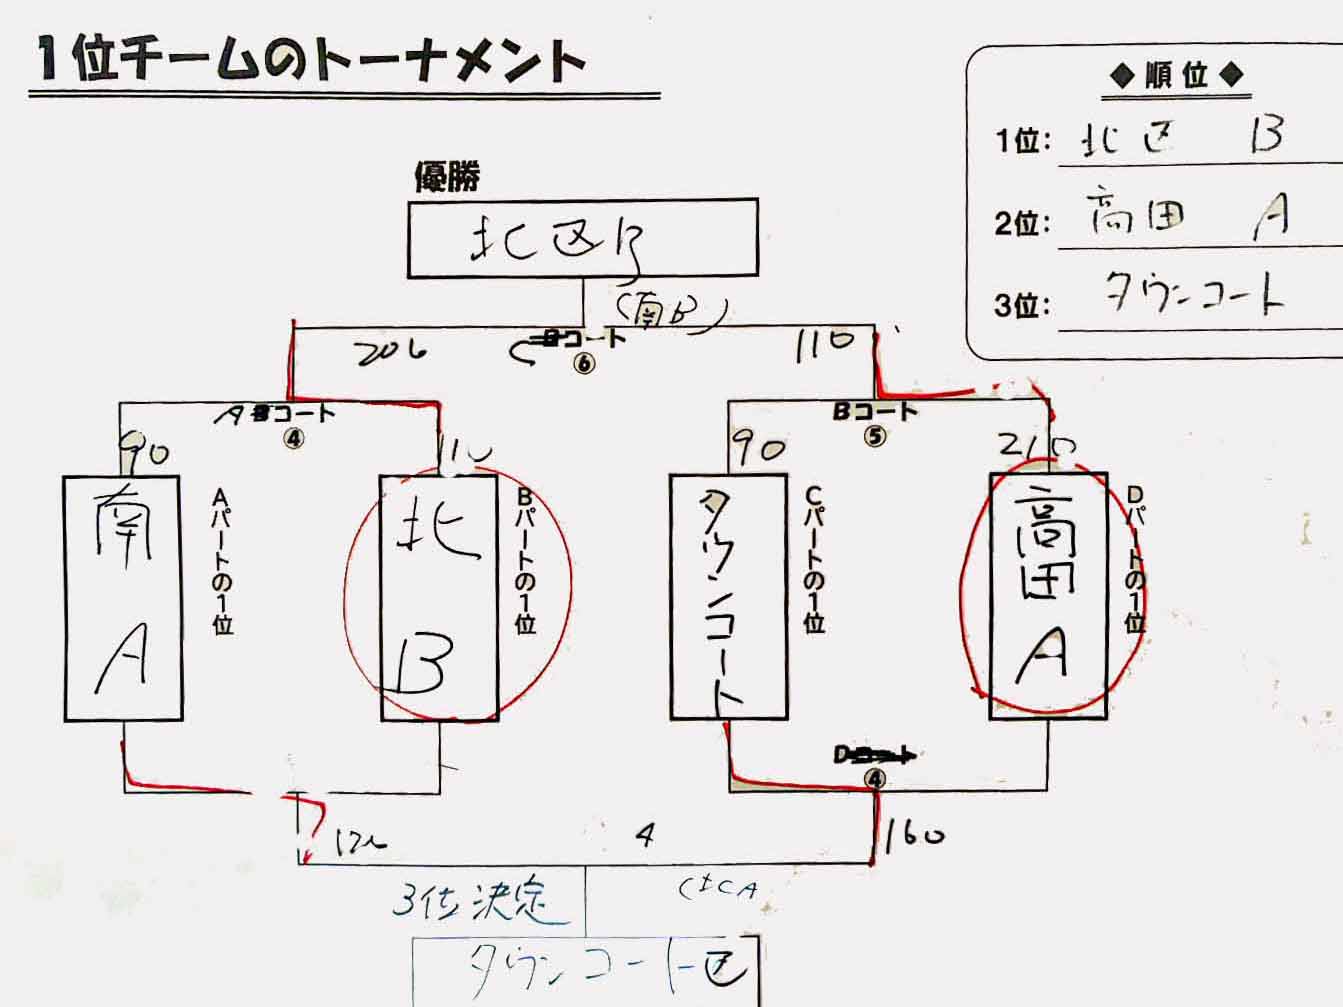 1位チームのトーナメント
◆ 順 位 ◆
1位: 北区 B
2位: 高田 A
3位: タウンコート
優勝
北区B
(南B)
206
コート
⑥
110
A コート
④
Bコート
⑤
90
110
90
210
南A
Aパートの1位
北B
Bパートの1位
タウンコート
Cパートの1位
高田A
Dパートの1位
④
4
160
3位決定
タウンコート